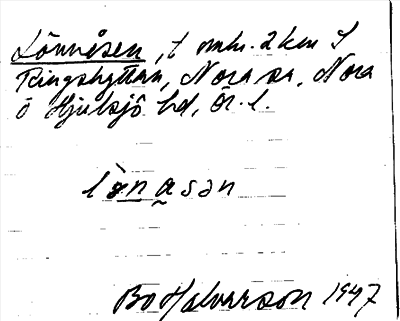 Lönnåsen, t omr. 2 km S
Ringshyttan, Nora sn, Nora
o Hjulsjö hd, Ör. l.
lö̀nasan
Bo Halvarson 1947